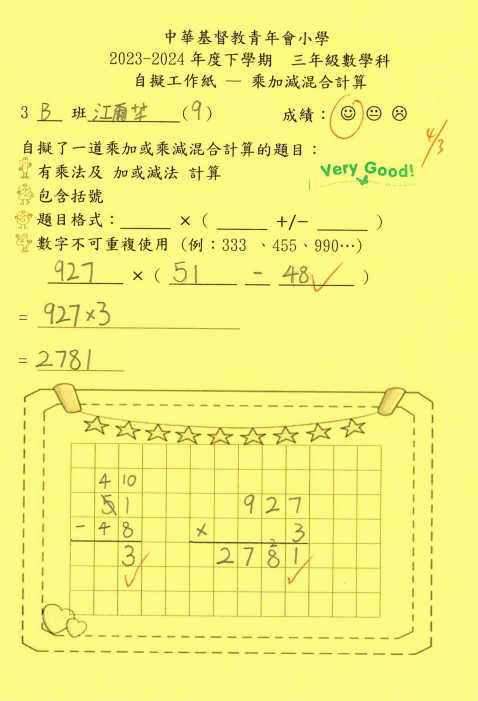 中華基督教青年會小學
2023-2024 年度下學期 三年級數學科
自擬工作紙 — 乘加減混合計算
3 B 班 江爾芏 (9) 成績：
4/3
自擬了一道乘加或乘減混合計算的題目：
Very Good!
1 有乘法及 加或減法 計算
2 包含括號
3 題目格式：______ × ( ______ +/− ______ )
4 數字不可重複使用 (例：333 、455、990…)
927 × ( 51 − 48 )
= 927×3
= 2781
4 10
51 927
− 48 × 3
2
3 2781